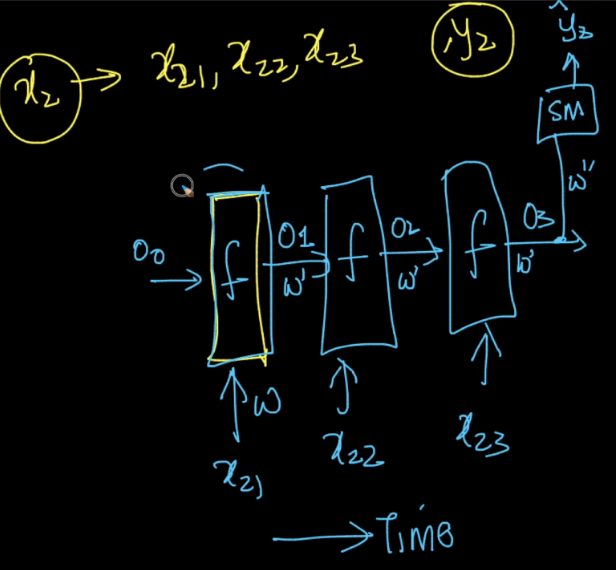 x₂ → x₂₁, x₂₂, x₂₃ , y₂ ŷ₂
SM
w''
O₀ f O1 f O2 f O3
w' w' w'
w
x₂₁ x₂₂ x₂₃
→ Time